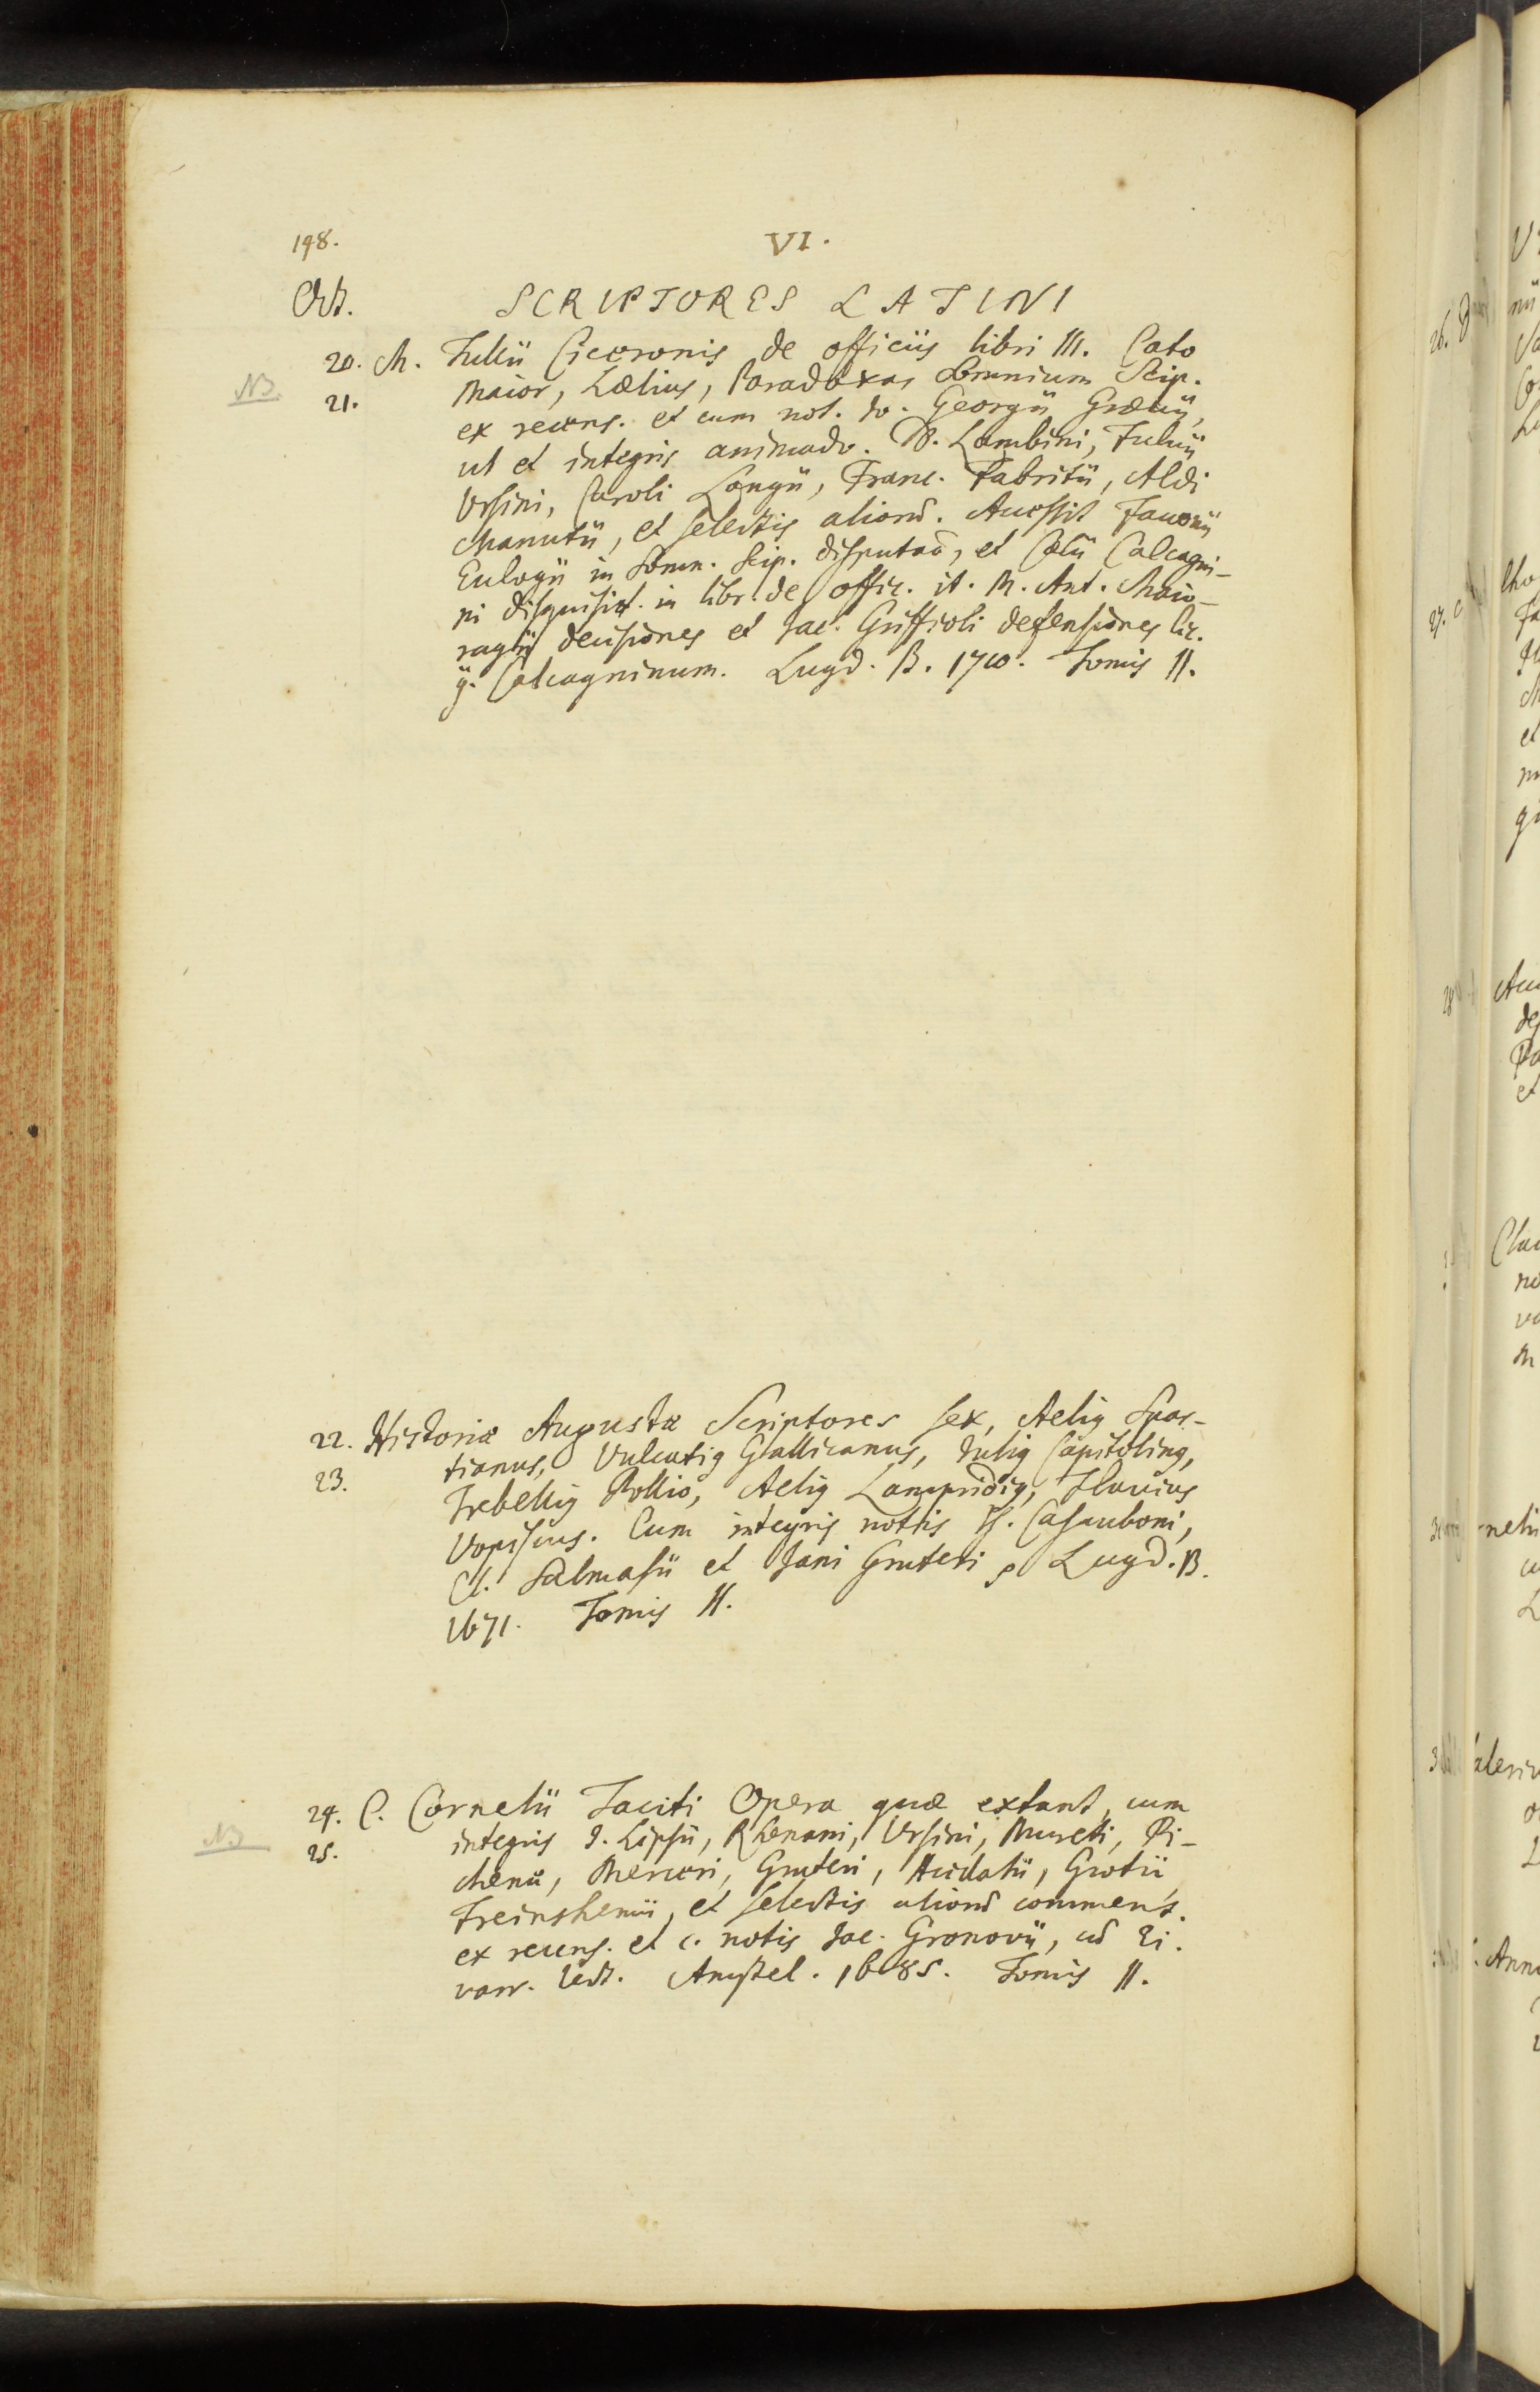 198.
VI.
Oct.
SCRIPTORES LATINI
20. M. Tullii Ciceronis de officiis libri III. Cato
NB.
21.
Maior, Lælius, Paradoxas Somnium Scip.
ex recens. et cum not. Io. Georgii Grævii,
ut et integris animadv. D. Lambini, Fulvii
Ursini, Caroli Langii, Franc. Fabritii, Aldi
Manutii, et selectis aliorũ. Accessit Favonii
Eulogii in Somn. Scip. disputaõ, et Cœlii Calcagni-
ni disquisit. in libr. de offic. it. M. Ant. Maio-
ragii decisiones et Iac. Griffioli defensiones Cic.
Calcagninum. Lugd. B. 1710. Tomis II.
22. Historiæ Augustæ Scriptores sex, Aelig Spar-
23.
tianus, Vulcatig Gallicanus, Iulig Capitoling,
Trebellig Pollio, Aelig Lampridig, Flavius
Vopiscus. Cum integris nottis Is. Casauboni,
Cl. Salmasii et Jani Gruteri Lugd. B.
1671. Tomis II.
24. C. Cornelii Taciti Opera quæ extant, cum
NB
25.
integris I. Lipsii, Rhenani, Ursini, Mureti, Pi-
chenæ, Merceri, Gruteri, Acidalii, Grotii
Freinshemii, et selectis aliorũ comment.
ex recens. et c. notis Iac. Gronovii, cũ
varr. lect. Amstel. 1685. Tomis II.